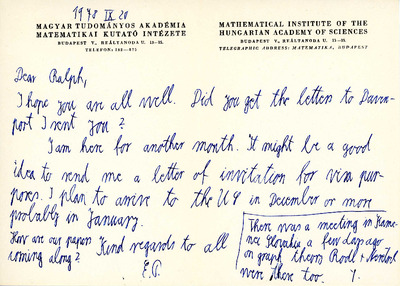 1978 IX 20
MAGYAR TUDOMÁNYOS AKADÉMIA
MATEMATIKAI KUTATÓ INTÉZETE
BUDAPEST V., REÁLTANODA U. 13—15.
TELEFON:
MATHEMATICAL INSTITUTE OF THE
HUNGARIAN ACADEMY OF SCIENCES
BUDAPEST V., REÁLTANODA U. 13—15.
TELEGRAPHIC ADDRESS: MATEMATIKA, BUDAPEST
Dear Ralph,
I hope you are all well. Did you get the letters to Daven-
port I sent you?
I am here for another month. It might be a good
idea to send me a letter of invitation for visa pur-
poses. I plan to arrive to the US in December or more
probably in January.
How are our papers
coming along?
Kind regards to all
E.P.
There was a meeting in
Slovakia, a few days ago
on graph theory Rodl +
were there too.